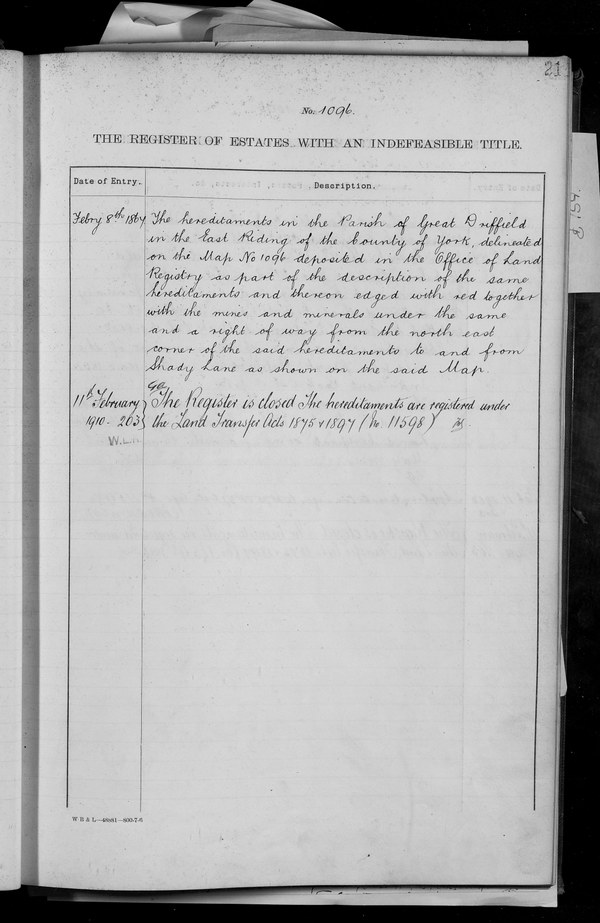 21
No. 1096.
THE REGISTER OF ESTATES WITH AN INDEFEASIBLE TITLE.
Date of Entry.
Description.
Febry 8th 1867
The hereditaments in the Parish of Great Driffield
in the East Riding of the County of York, delineated
on the Map No 1096 deposited in the Office of Land
Registry as part of the description of the same
hereditaments and thereon edged with red together
with the mines and minerals under the same
and a right of way from the north east
corner of the said hereditaments to and from
Shady Lane as shown on the said Map.
11th February
1910 - 263
W.L.
The Register is closed The hereditaments are registered under
the Land Transfer Acts 1875 & 1897 (No 11598)
W B & L—48681—800-7-6